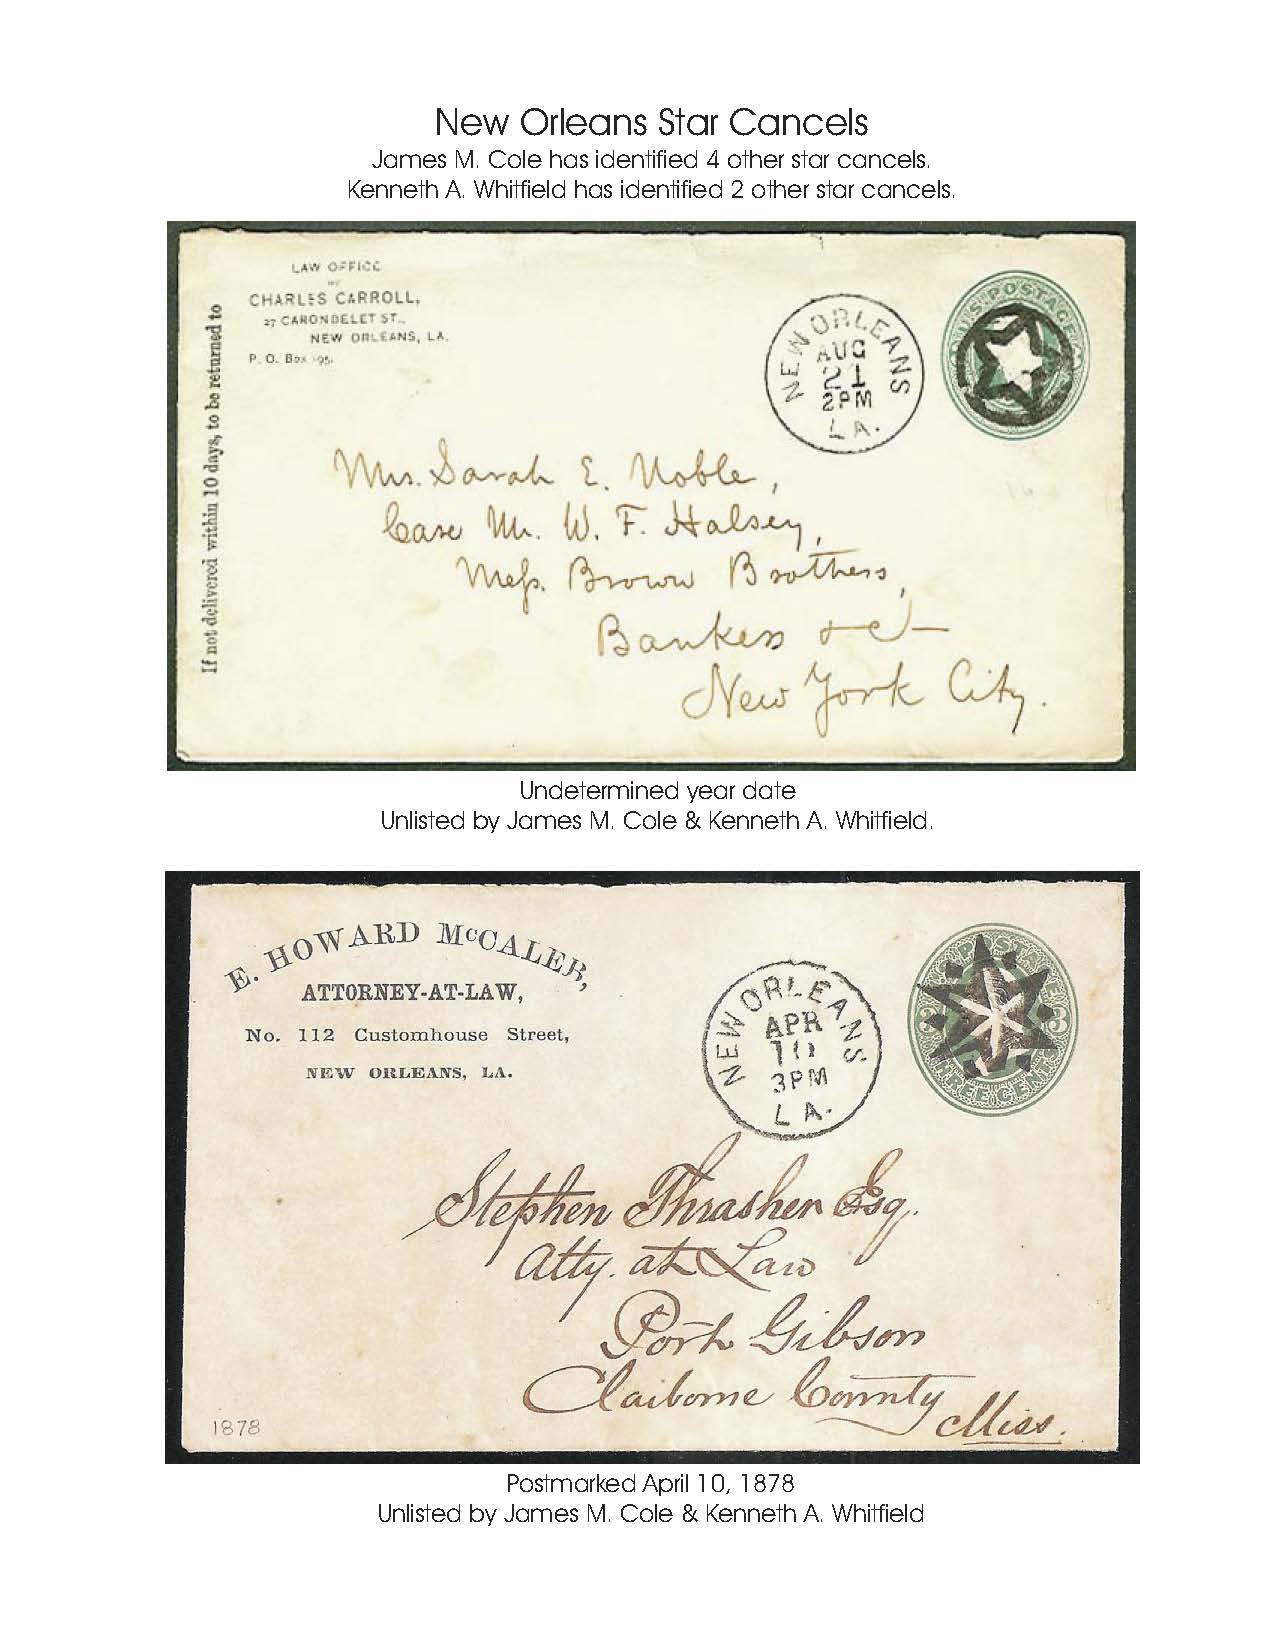 New Orleans Star Cancels
James M. Cole has identified 4 other star cancels.
Kenneth A. Whitfield has identified 2 other star cancels.
LAW OFFICE
OF
CHARLES CARROLL,
27 CARONDELET ST.,
NEW ORLEANS, LA.
P. O. Box 195.
If not delivered within 10 days, to be returned to
NEW ORLEANS
AUG
21
2PM
LA.
U.S. POSTAGE
Mrs. Sarah E. Noble,
Care Mr. W. F. Halsey,
Mess. Brown Brothers,
Bankers &c
New York City.
Undetermined year date
Unlisted by James M. Cole & Kenneth A. Whitfield.
E. HOWARD McCALEB,
ATTORNEY-AT-LAW,
No. 112 Customhouse Street,
NEW ORLEANS, LA.
NEW ORLEANS
APR
10
3PM
LA.
POSTAGE
3
THREE CENTS
Stephen Thrasher Esq.
Atty. at Law
Port Gibson
Claiborne County
Miss.
1878
Postmarked April 10, 1878
Unlisted by James M. Cole & Kenneth A. Whitfield